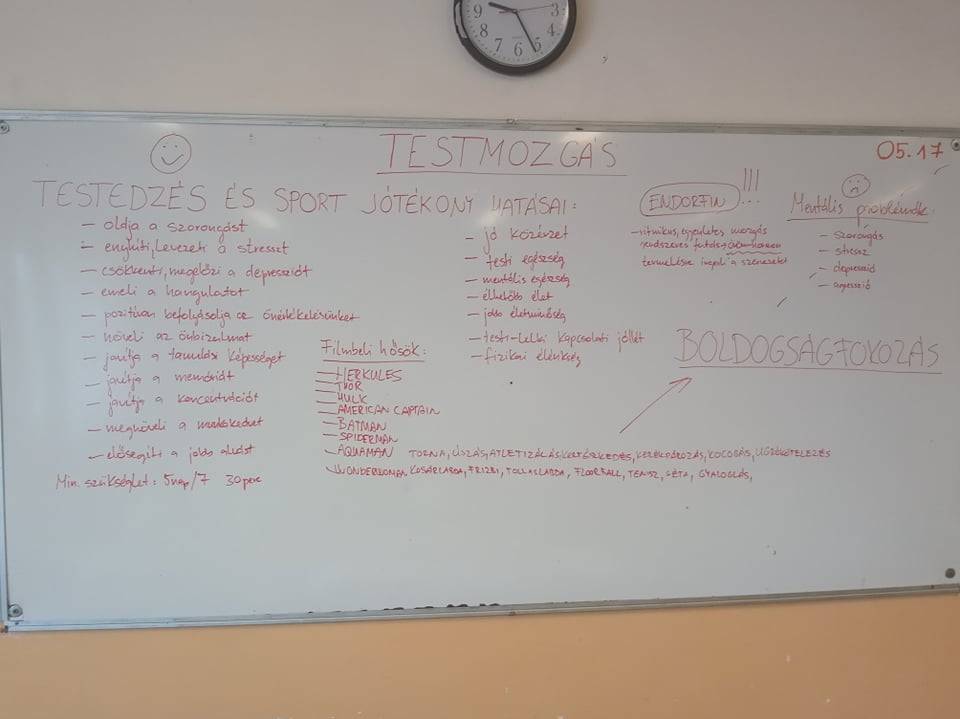 9
8
7
6
5
4
3
TESTMOZGÁS
05.17
TESTEDZÉS ÉS SPORT JÓTÉKONY HATÁSAI:
- oldja a szorongást
- enyhíti, levezeti a stresszt
- csökkenti, megelőzi a depressziót
- emeli a hangulatot
- pozitívan befolyásolja az önértékelésünket
- növeli az önbizalmat
- javítja a tanulási képességet
- javítja a memóriát
- javítja a koncentrációt
- megnöveli a munkakedvet
- elősegíti a jobb alvást
Min. szükséglet: 5nap/7 30perc
Filmbeli hősök:
- HERKULES
- THOR
- HULK
- AMERICAN CAPTAIN
- BATMAN
- SPIDERMAN
- AQUAMAN
- WONDERWOMAN
- jó közérzet
- testi egészség
- mentális egészség
- élhetőbb élet
- jobb életminőség
- testi-lelki kapcsolati jóllét
- fizikai élénkség
ENDORFIN !!!
- ritmikus, egyenletes mozgás
rendszeres
termelésre a szervezetet
Mentális problémák:
- szorongás
- stressz
- depresszió
- agresszió
BOLDOGSÁGFOKOZÁS
TORNA, ÚSZÁS, ATLETIZÁLÁS, KERTÉSZKEDÉS, KERÉKPÁROZÁS, KOCOGÁS, UGRÓKÖTELEZÉS
KOSÁRLABDA, FRIZBI, TOLLASLABDA, FLOORBALL, TENISZ, SÉTA, GYALOGLÁS,